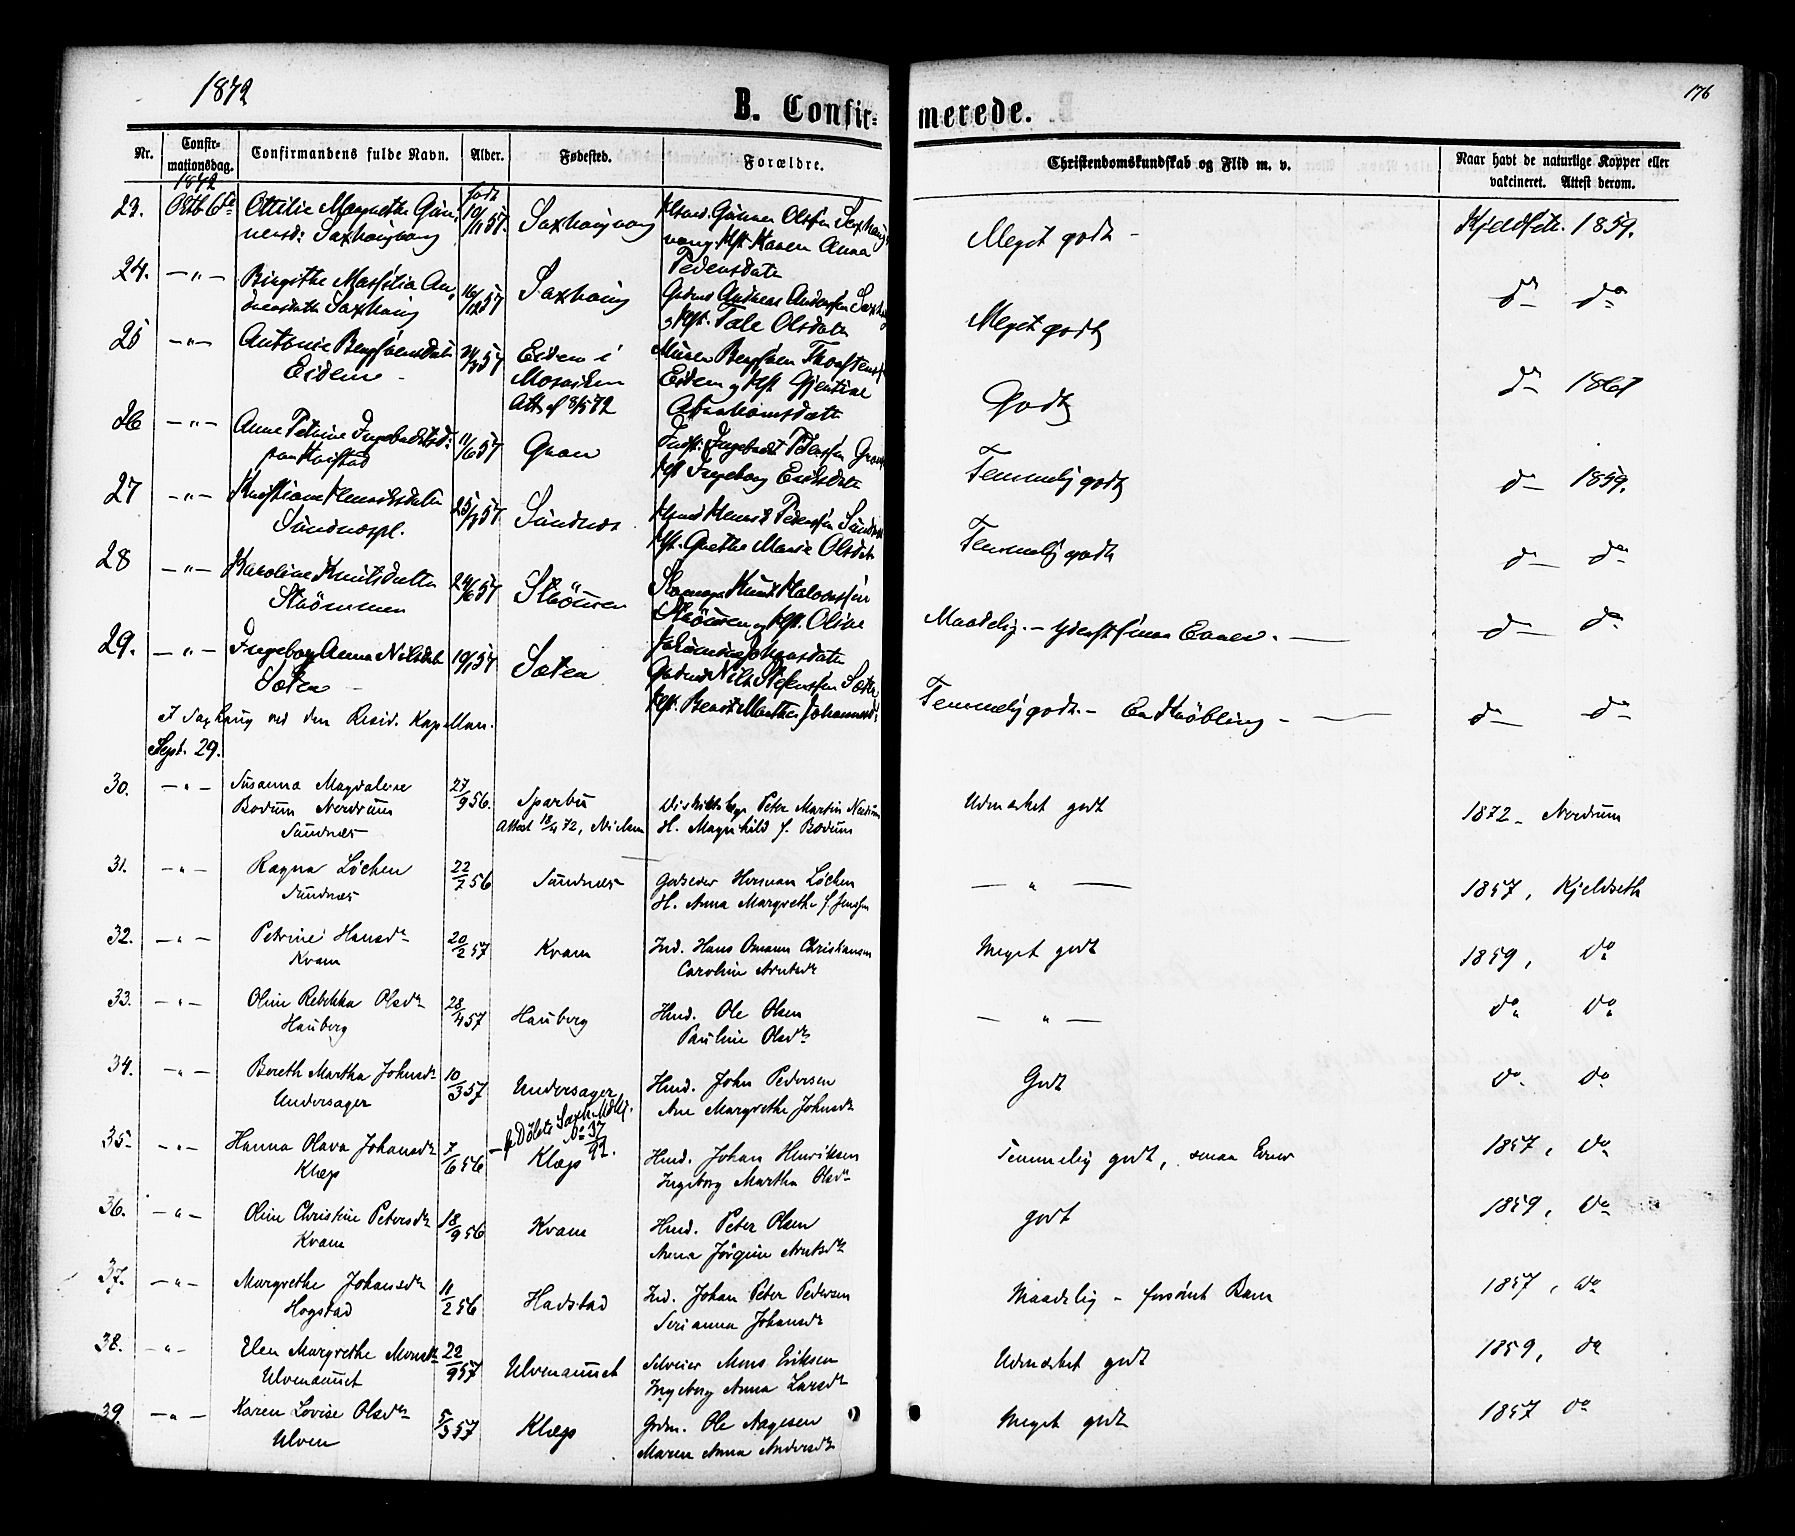 1872
176
B. Confirmerede.
Nr. Confirmationsdag. Confirmandens fulde Navn. Alder. Fødested. Forældre. Christendomskundskab og Flid m. v. Naar havt de naturlige Kopper eller vakcineret. Attest derom.
1872 født
23. Octb 6te Ottilie Margrethe Gunnersd: Saxhaugvang 10/11 57. Saxhaugvang Gunner Olsen Saxhaugvang Kst. Karen Anna Pedersdatr Meget godt - Kjeldset. 1859.
24. —"— Birgithe Andreasdatr Saxhaug 16/12 57 Saxhaug Grdmd Andreas Andersen Saxhaug & Kst. Tale Olsdatr Meget godt do do
25 —"— Antonie Bergsvensdatr Eidem 57 Eidem i Mosviken Att. af 8/5 72 Bergsven Eidem og Kst. Gjertine Abrahamsdatr Godt do 1861
26 —"— Anne Petrine Ingebrigtsd: 11/6 57 Gran Ingebrigt Pedersen Gran Kst Ingeborg Eriksdatr Temmelig godt do 1859.
27 —"— Kristiane Henriksdatter Sundnæspl. 25/3 57 Sundnæs Hmd Henrik Pedersen Sundnæs Kst. Grethe Marie Olsdatr Temmelig godt do do
28 —"— Karoline Knutsdatter Strømmen 57 Knut Halvorsen og Kst. Oline Maadelig. — yderst smaa Evner. — do do
29. —"— Ingeborg Anna Nilsdatr Sæter 10/1 57 Sæter Grdmd Nils Stefensen Sæter Kst. Berit Martha Johannesd: Temmelig godt. — En Krøbling — do do
I Saxhaug ved den Resid. Kapellan.
Sept. 29.
30. —"— Susanna Magdalene Bodum Nordrum Sundnæs 27/9 56. Sparbu Attest 18/4 72, Peter Martin Nordrum H. Magnhild f. Bodum Udmærket godt 1872 - Nordrum
31. —"— Ragna Løchen Sundnæs 22/2 56 Sundnæs Godseier Herman Løchen H. Anna Margrethe f. Jenssen —"— 1857, Kjeldseth
32. —"— Petrine Hansdr Kvam 20/2 57 Kvam Ind. Hans Omann Christiansen Caroline Arntsdr Meget godt 1859, do
33. —"— Oline Rebekka Olsdr Hauberg 28/4 57 Hauberg Hmd. Ole Olsen Pauline Olsdr —"— do do
34. —"— Bereth Martha Johnsdr Undersager 10/3 57 Undersager Hmd. John Pedersen Ane Margrethe Johnsdr Godt do do
35 —"— Hanna Olava Johansdr Klæp 7/6 56 No 37 Klæp Hmd. Johan Henriksen Ingeborg Martha Olsdr Temmelig godt, smaa Evner 1857, do
36. —"— Oline Christine Petersdr Kvam 18/9 56 Kvam Hmd. Peter Olsen Anna Jørgine Arntsdr godt 1859, do
37. —"— Margrethe Johansdr Hogstad 11/2 56 Hadstad Ind. Johan Peter Pedersen Serianna Johansdr Maadelig - forsømt Barn 1857, do
38. —"— Elen Margrethe Monsdr Ulvenaunet 22/9 57 Ulvenaunet Selveier Mons Eriksen Ingeborg Anna Larsdr Udmærket godt 1859, do
39. —"— Karen Lovise Olsdr Ulven 5/3 57 Klæp Grdm. Ole Aagesen Maren Anna Andersdr Meget godt 1857 do